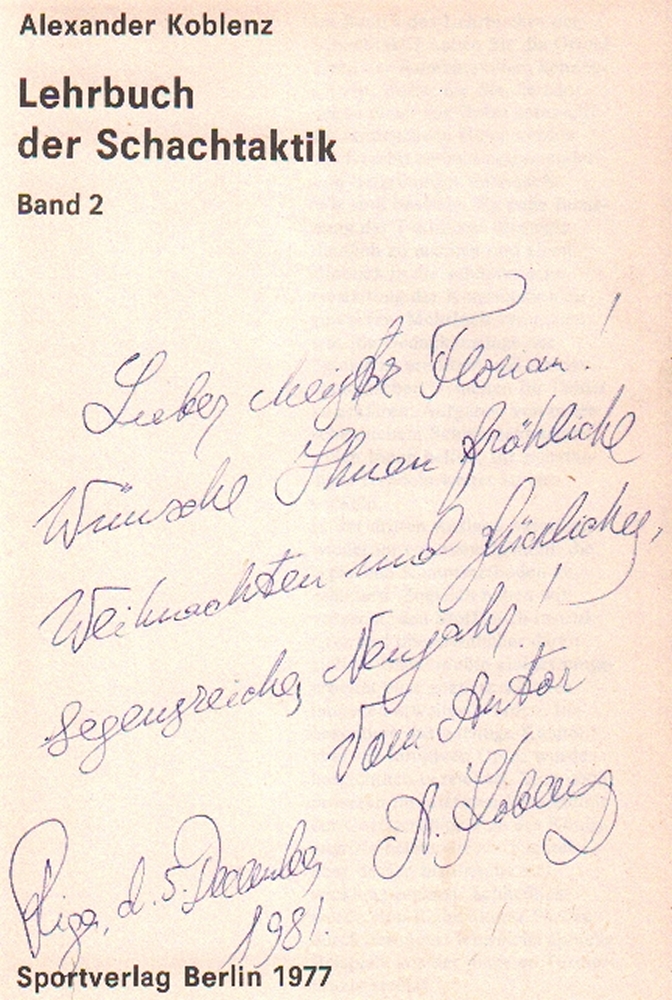 Alexander Koblenz
Lehrbuch
der Schachtaktik
Band 2
Lieber Meister Florian!
Wünsche Ihnen fröhliche
Weihnachten und glückliches,
segensreiches Neujahr!
Vom Autor
A. Koblenz
Riga, d. 5. Dezember
1981.
Sportverlag Berlin 1977